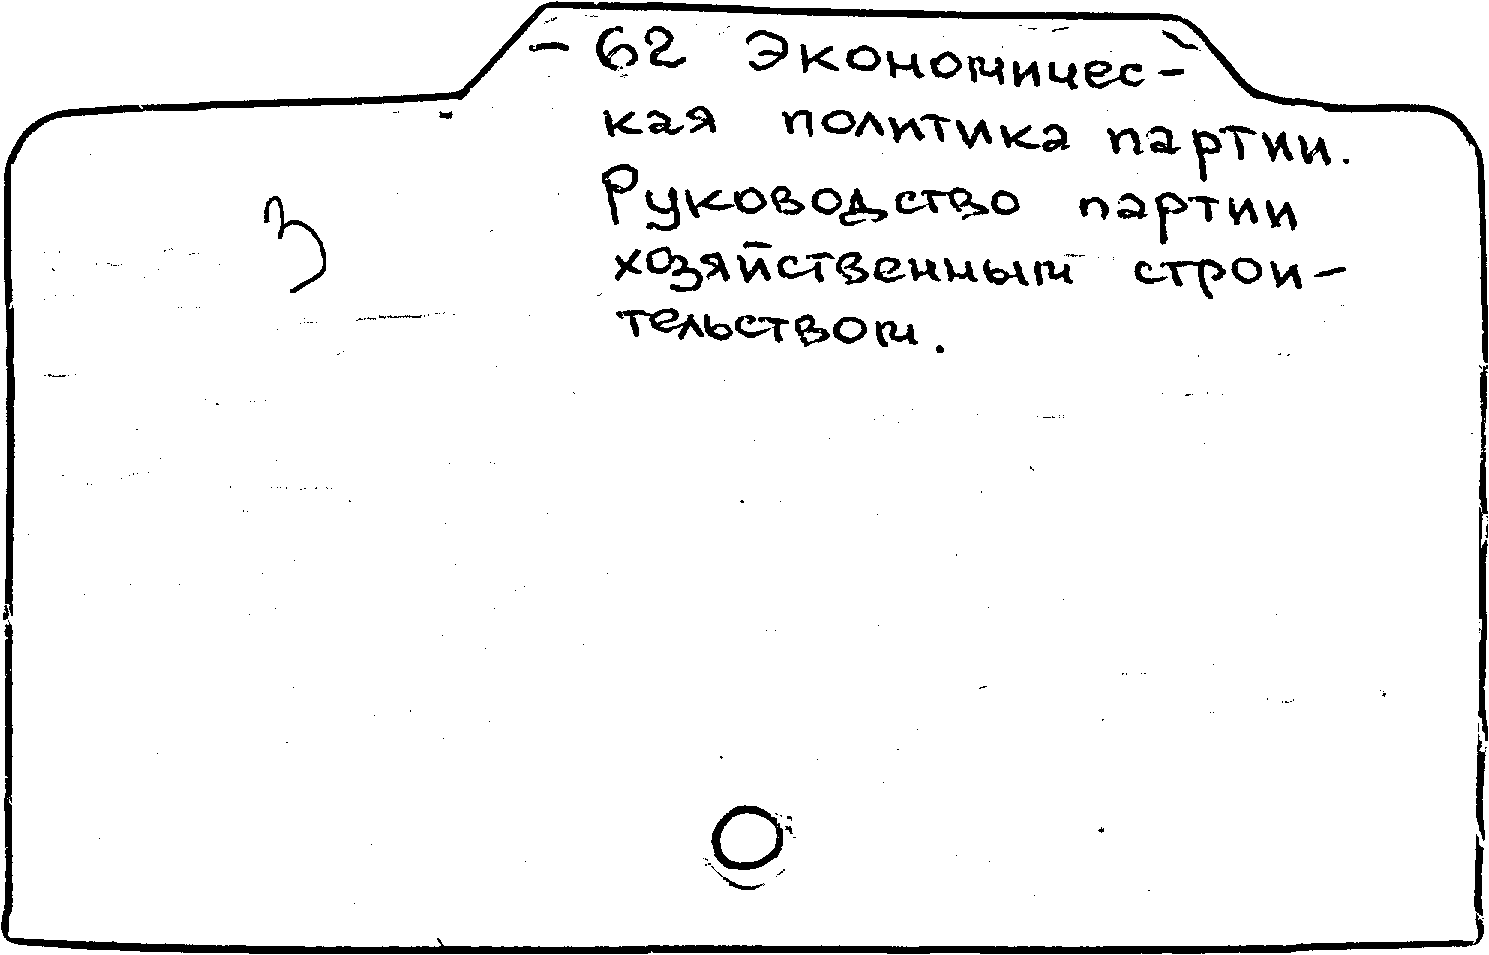 - 62 Экономичес-
кая политика партии.
Руководство партии
3
хозяйственным строи-
тельством.